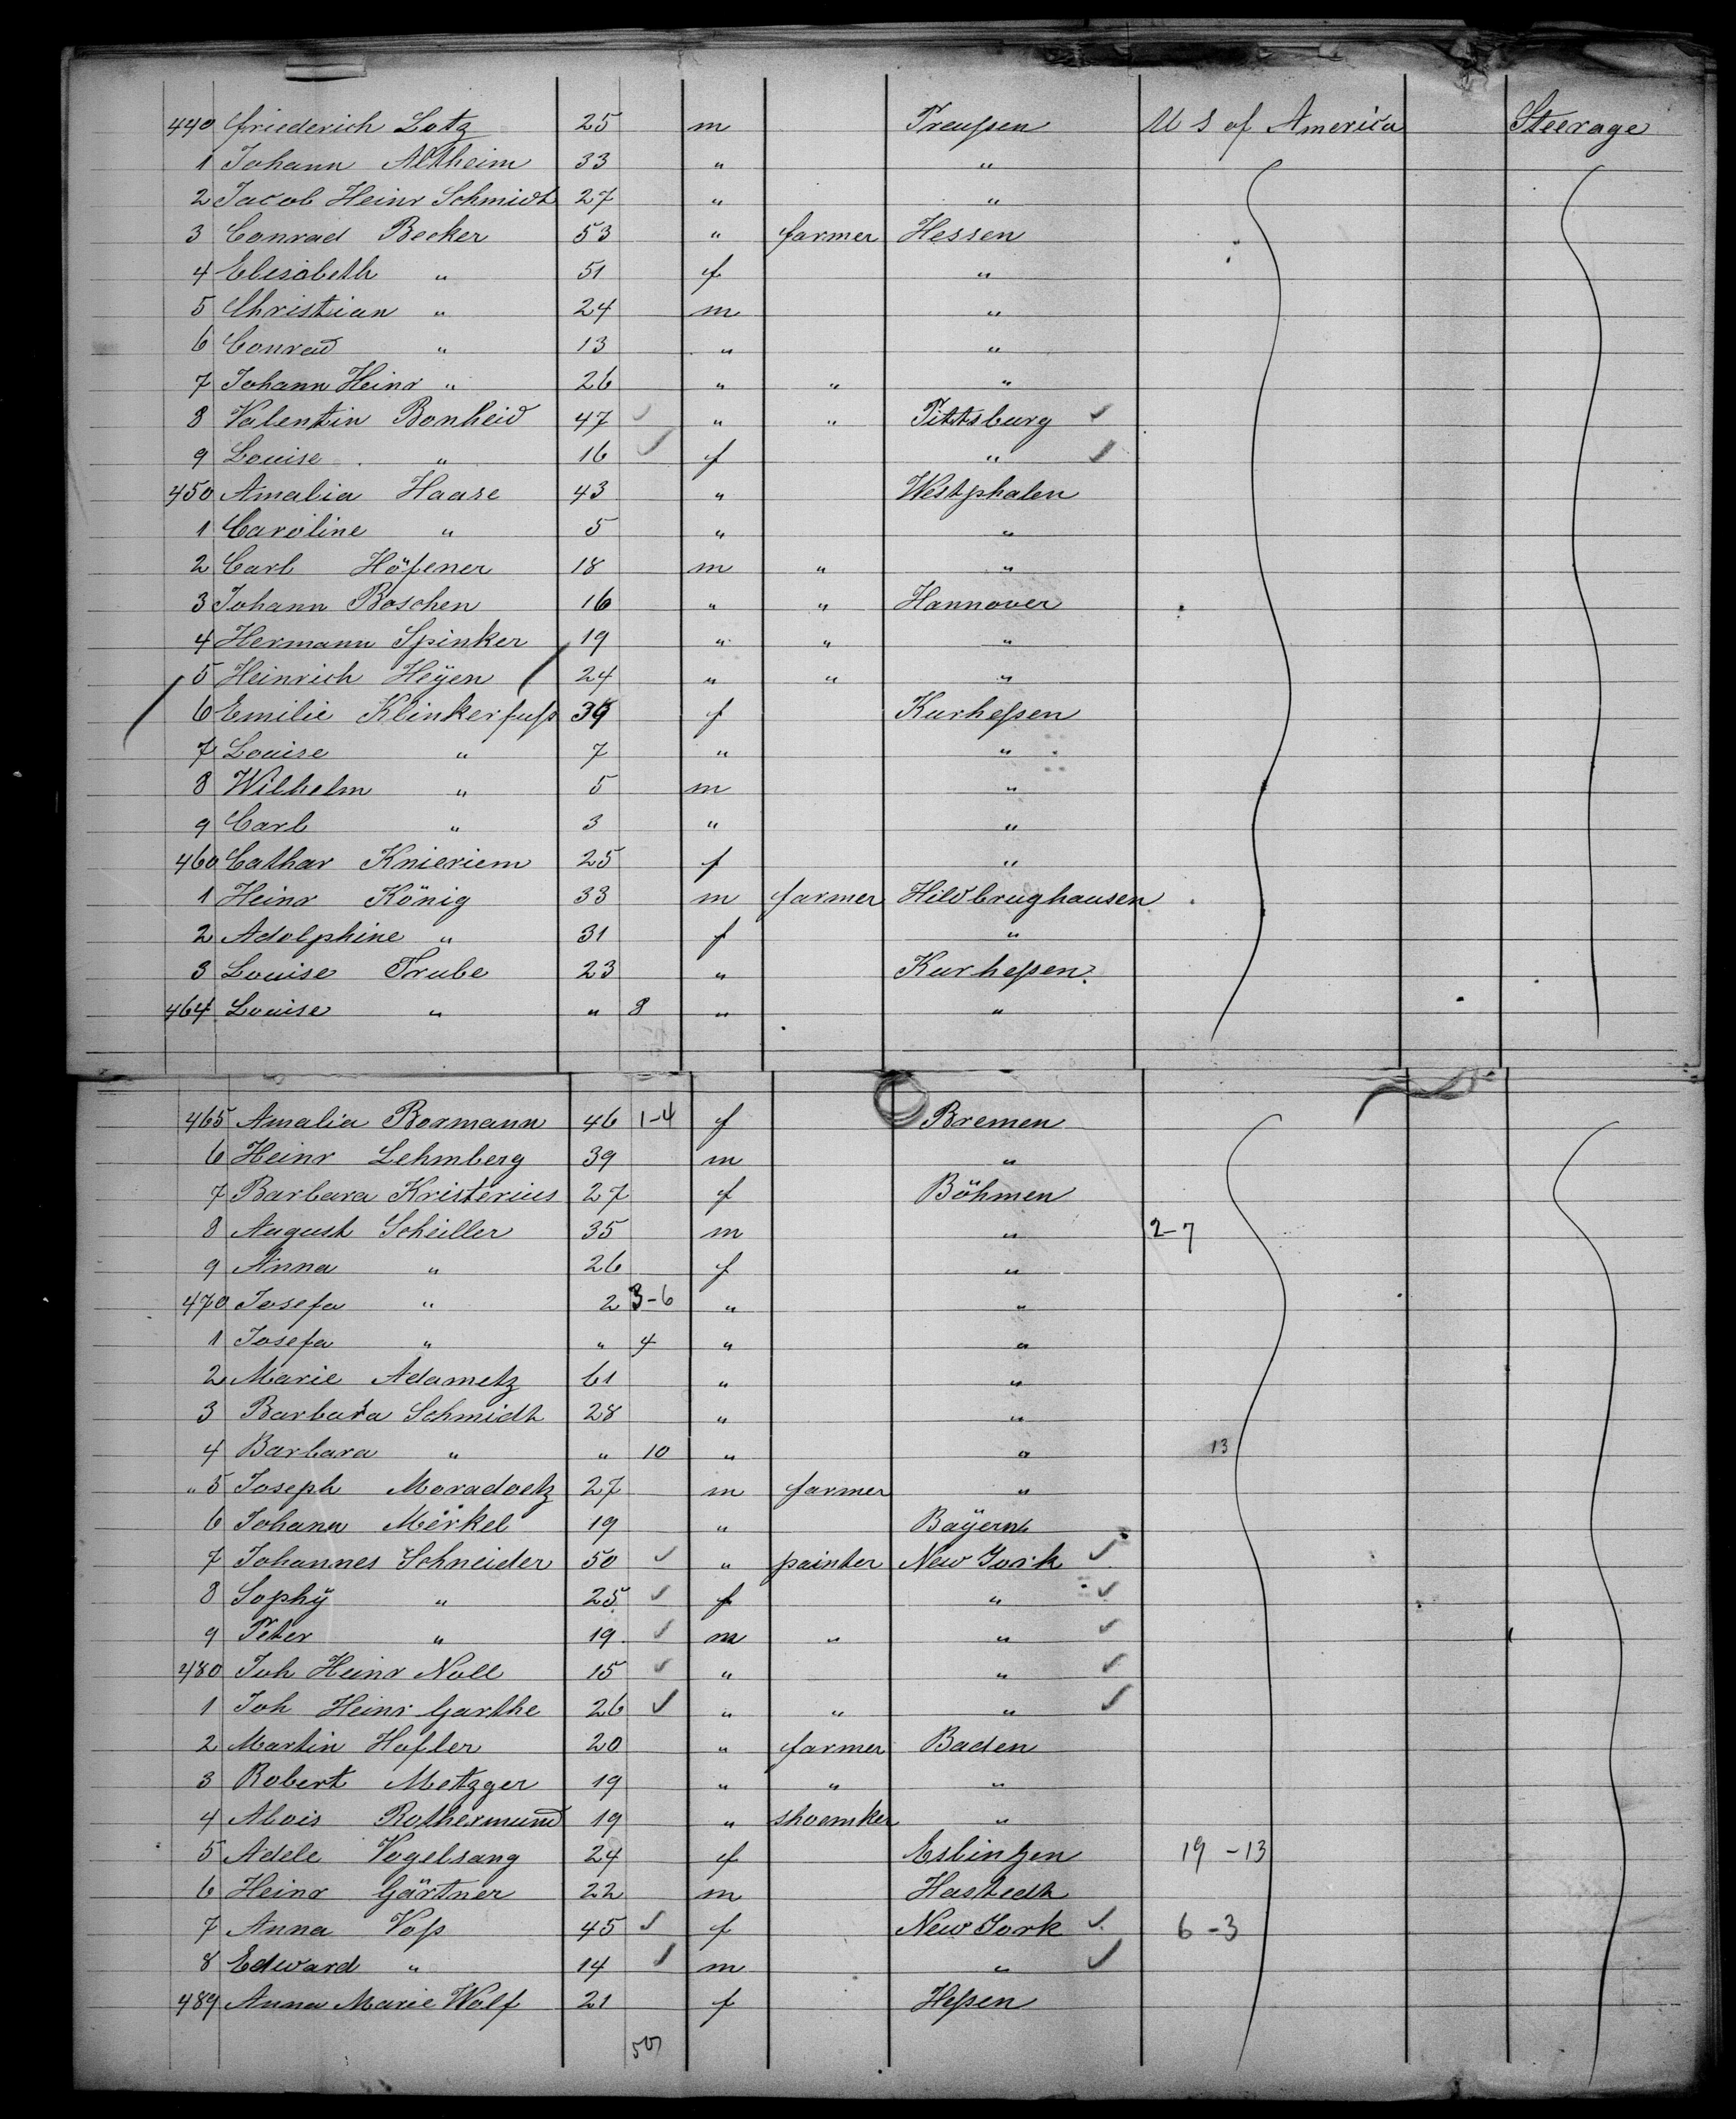 440 Friederich Lotz 25 m Preußen U S of America Steerage
1 Johann Altheim 33 " "
2 Jacob Heinr Schmidt 27 " "
3 Conrad Becker 53 " farmer Hessen
4 Elisabeth " 51 f "
5 Christian " 24 m "
6 Conrad " 13 " "
7 Johann Heinr " 26 " " "
8 Valentin Bonheid 47 " " Pittsburg
9 Louise " 16 f "
450 Amalia Haase 43 " Westphalen
1 Caroline " 5 " "
2 Carl Höfener 18 m " "
3 Johann Boschen 16 " " Hannover
4 Hermann Spinker 19 " " "
5 Heinrich Heÿen 24 " " "
6 Emilie Klinkerfuß 39 f Kurheßen
7 Louise " 7 " "
8 Wilhelm " 5 m "
9 Carl " 3 " "
460 Cathar Knieriem 25 f "
1 Heinr König 33 m farmer Hildbrughausen
2 Adolphine " 31 f "
3 Louise Trube 23 " Kurheßen
464 Louise " " 8 " "
465 Amalia Bormann 46 1-4 f Bremen
6 Heinr Lehmberg 39 m "
7 Barbara Kristerius 27 f Böhmen
8 August Scheiller 35 m " 2-7
9 Anna " 26 f "
470 Josefa " 2 3-6 " "
1 Josefa " " 4 " "
2 Marie Adametz 61 " "
3 Barbara Schmidt 28 " "
4 Barbara " " 10 " " 13
" 5 Joseph Moradoetz 27 m farmer "
6 Johann Merkel 19 " Baÿern
7 Johannes Schneider 50 " painter New York
8 Sophÿ " 25 f "
9 Peter " 19 m " "
480 Joh Heinr Noll 15 " "
1 Joh Heinr Garthe 26 " " "
2 Martin Hofler 20 " farmer Baden
3 Robert Metzger 19 " " "
4 Alois Rothermund 19 " shoemker "
5 Adele Vogelsang 24 f Eslingen 19-13
6 Heinr Gärtner 22 m Hastedt
7 Anna Voß 45 f New York 6-3
8 Edward " 14 m "
489 Anna Marie Wolf 21 f Heßen
50